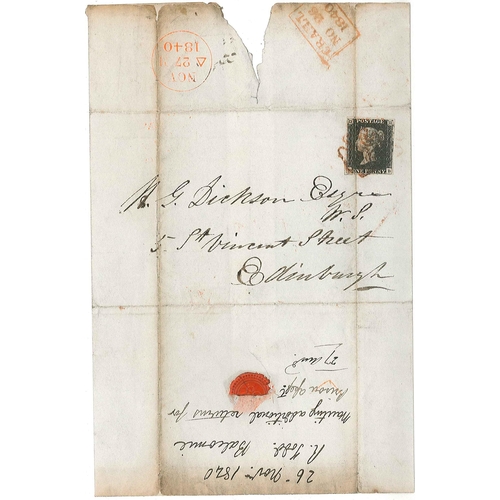 NOV
27
1840
NO 26
1840
POSTAGE
ONE PENNY
W. G. Dickson Esqre
W. S.
5. St Vincent Street
Edinburgh
26 Novr 1840
R. Todd. Balcomie
Wanting additional returns for